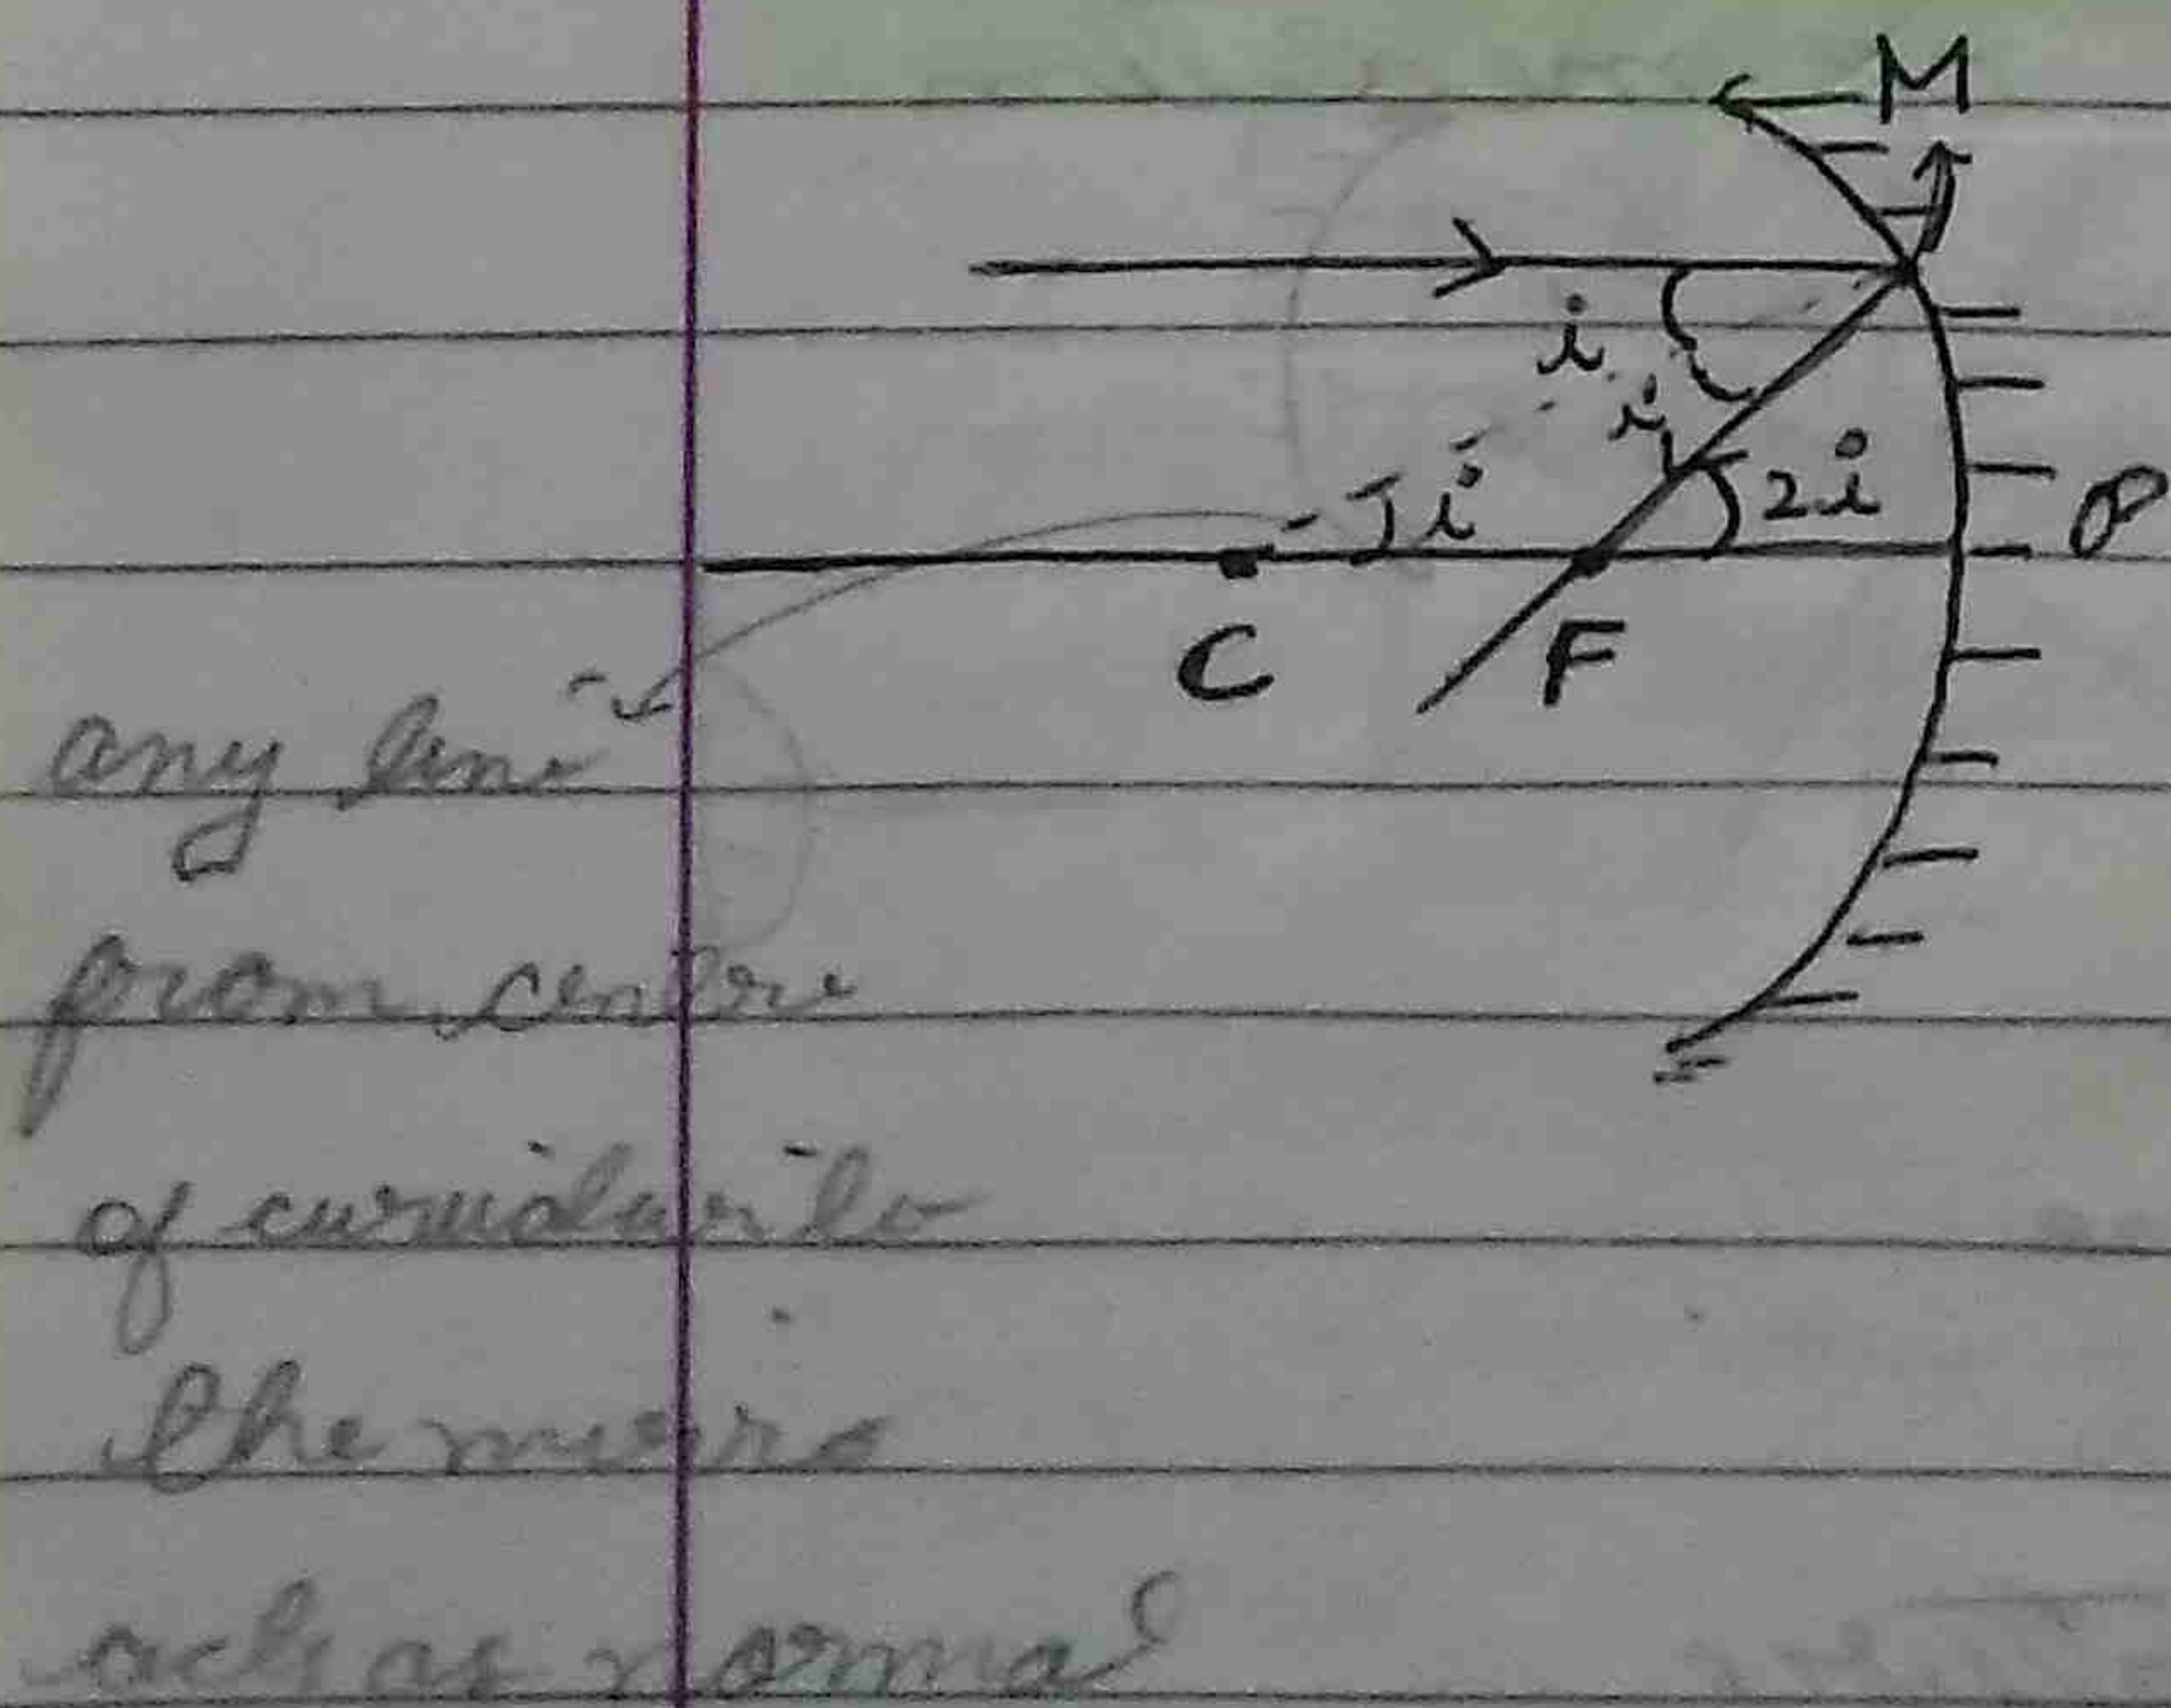 M
i
i
i
2i
P
C
F
any line
from centre
of curvature to
the mirro
acts as normal